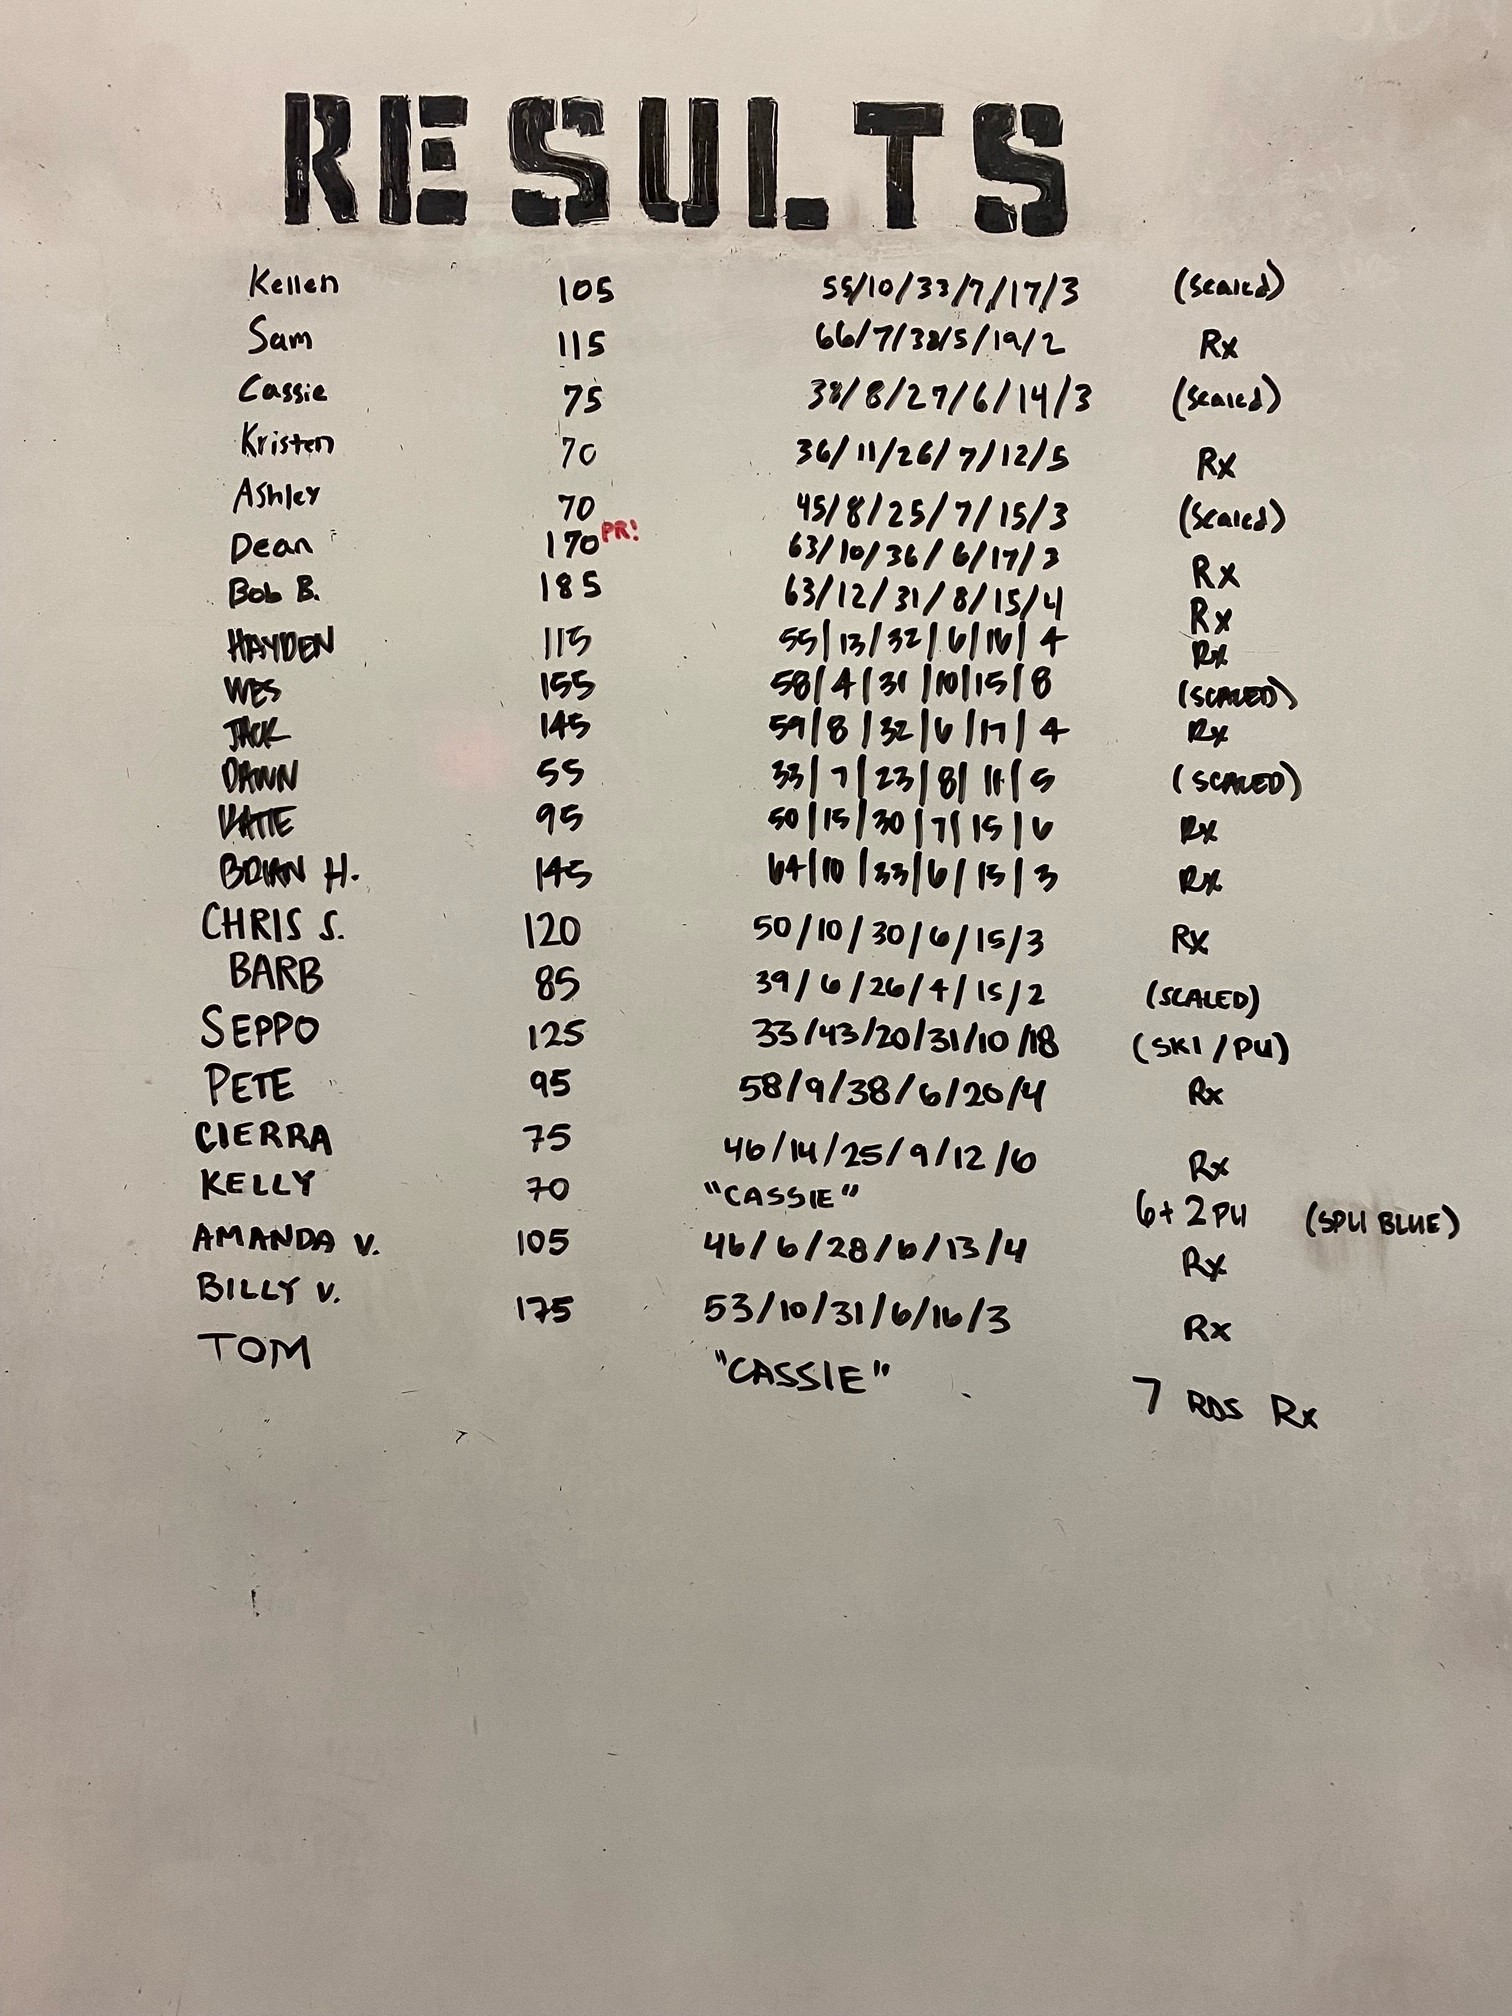 RESULTS
Kellen 105 55/10/33/7/17/3 (Scaled)
Sam 115 66/7/38/5/19/2 Rx
Cassie 75 38/8/27/6/14/3 (Scaled)
Kristen 70 36/11/26/7/12/5 Rx
Ashley 70 45/8/25/7/15/3 (Scaled)
Dean 170 PR! 63/10/36/6/17/3 Rx
Bob B. 185 63/12/31/8/15/4 Rx
HAYDEN 115 55/13/32/6/16/4 Rx
WES 155 58/4/31/10/15/8 (SCALED)
JACK 145 59/8/32/6/17/4 Rx
DAWN 55 33/7/23/8/11/5 (SCALED)
KATIE 95 50/15/30/7/15/6 Rx
BRIAN H. 145 64/10/33/6/15/3 Rx
CHRIS S. 120 50/10/30/6/15/3 Rx
BARB 85 39/6/26/4/15/2 (SCALED)
SEPPO 125 33/43/20/31/10/18 (SKI/PU)
PETE 95 58/9/38/6/20/4 Rx
CIERRA 75 46/14/25/9/12/6 Rx
KELLY 70 "CASSIE" 6+2PU (SPU BLUE)
AMANDA V. 105 46/6/28/6/13/4 Rx
BILLY V. 175 53/10/31/6/16/3 Rx
TOM "CASSIE" 7 RDS Rx